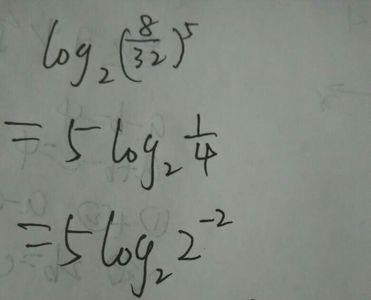 log₂(8/32)⁵
= 5 log₂ 1/4
= 5 log₂ 2⁻²